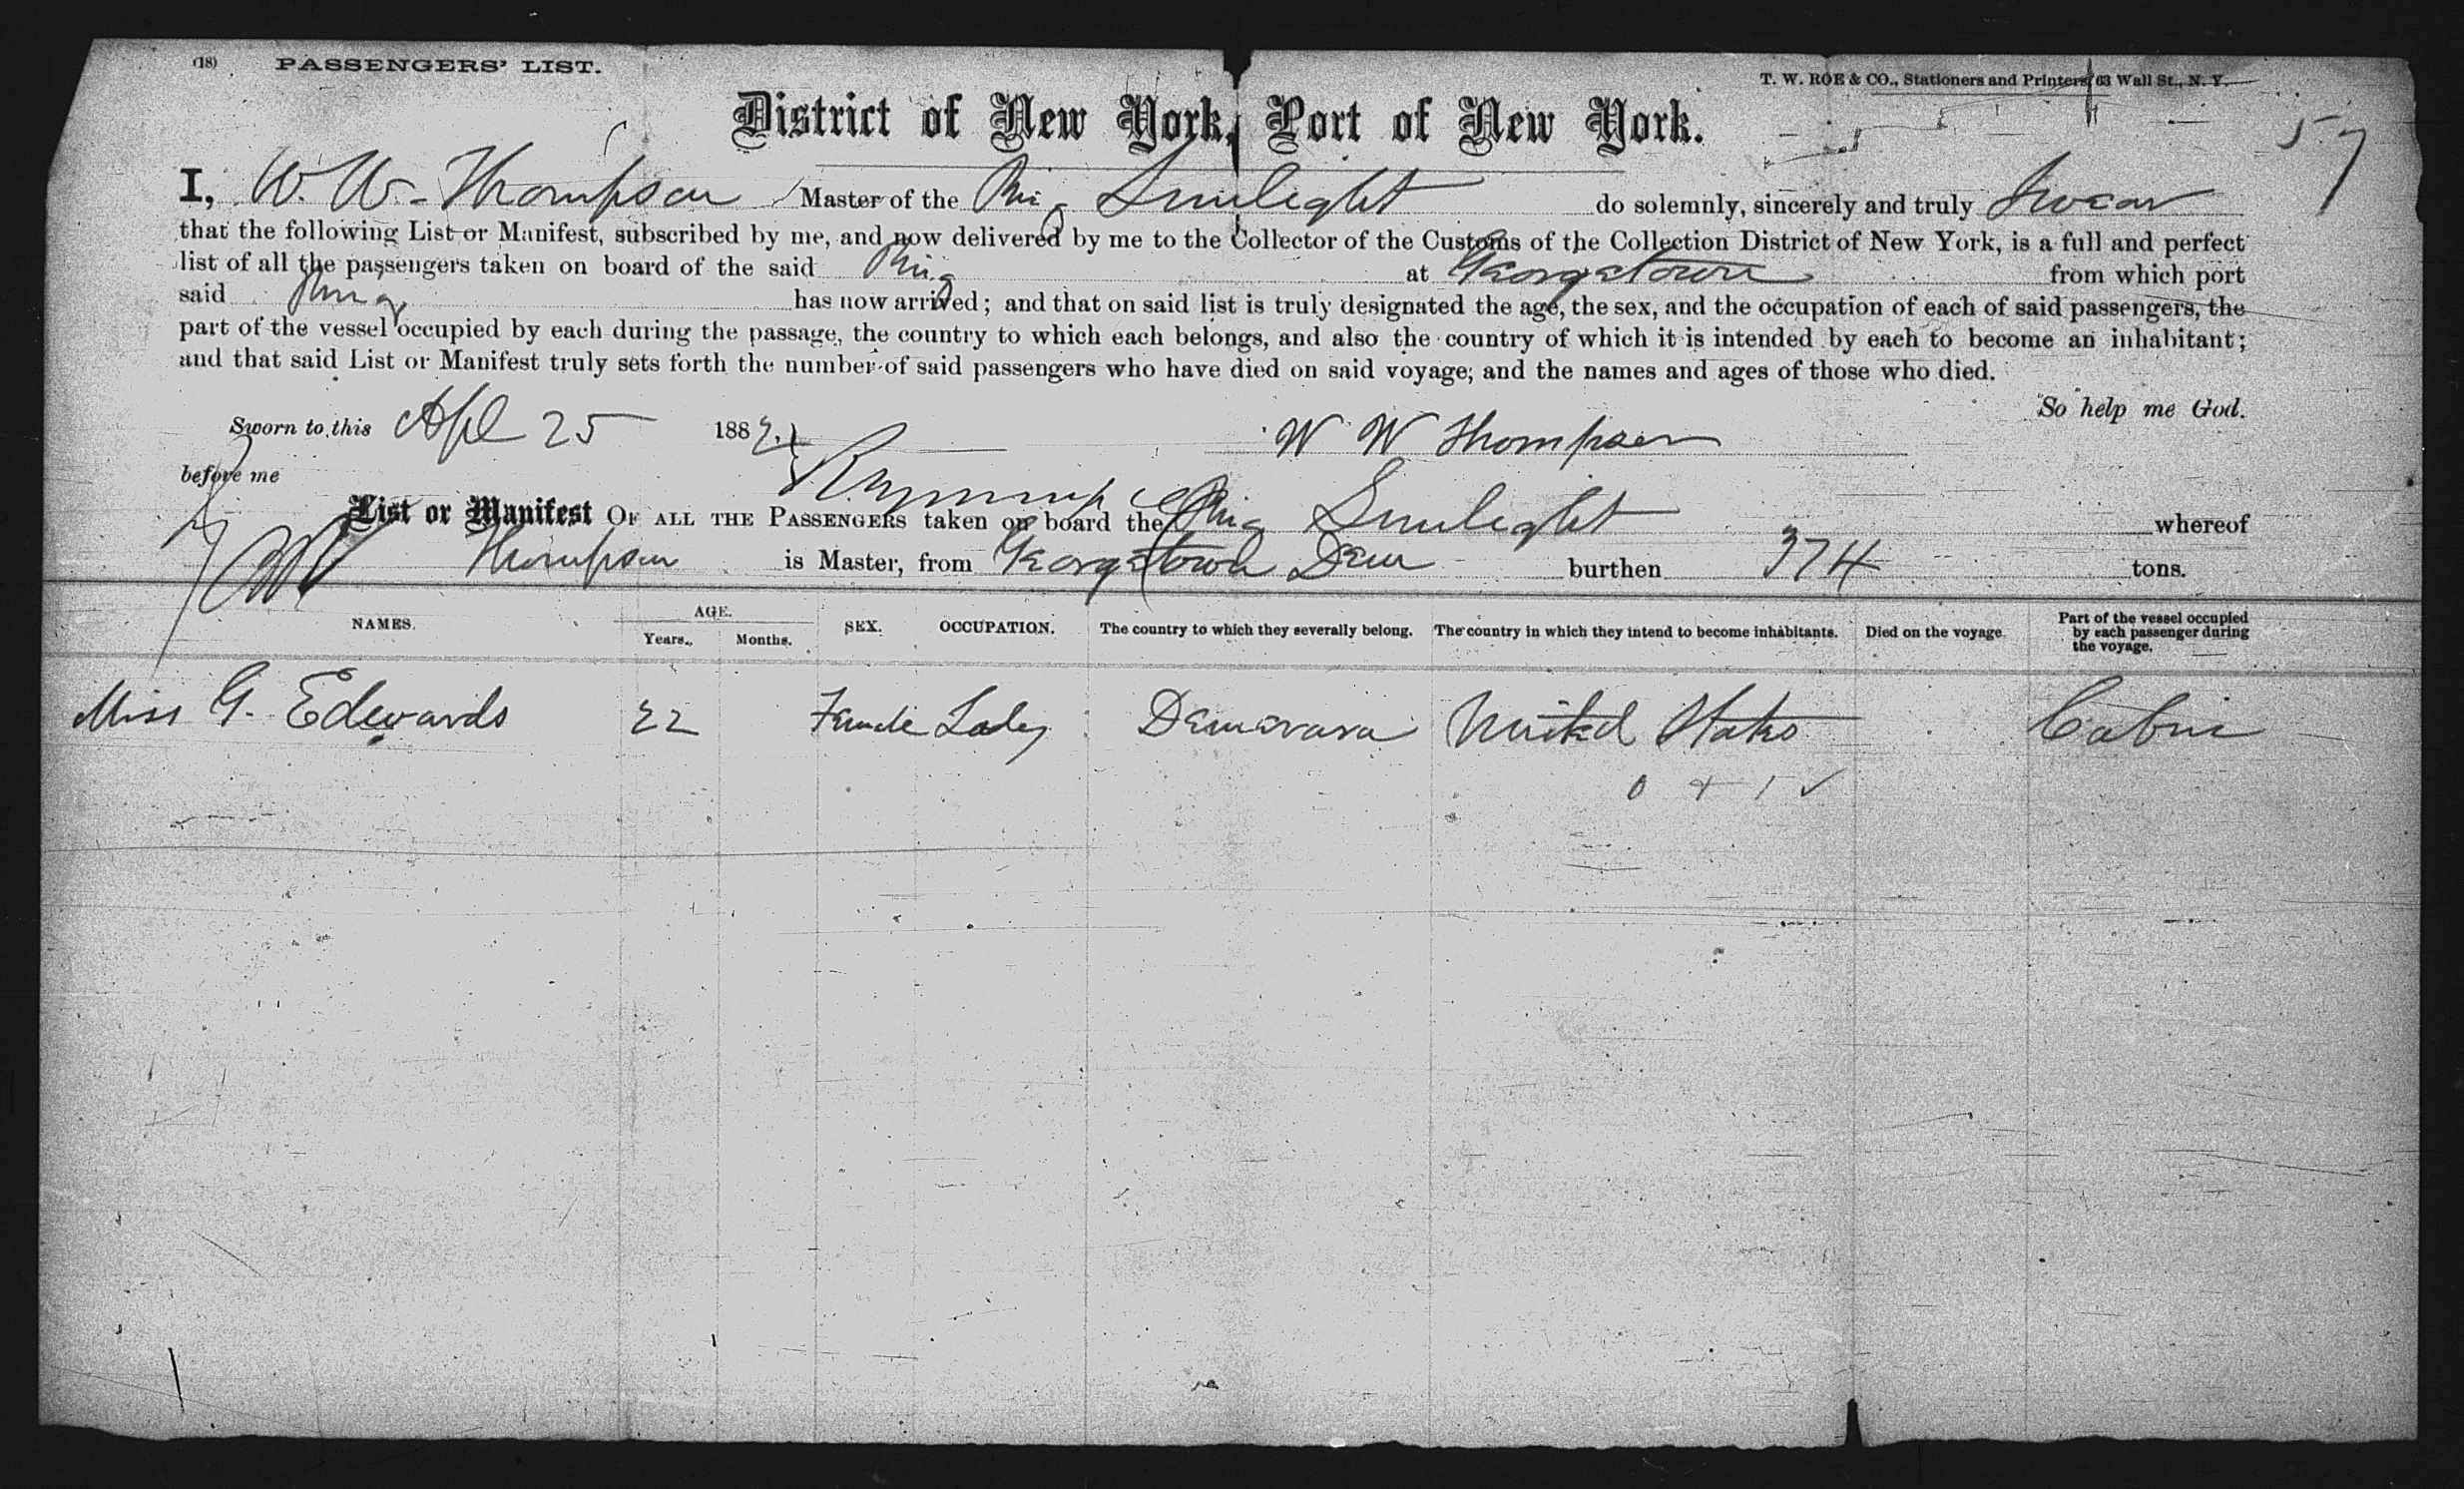 (18) PASSENGERS' LIST.
T. W. ROE & CO., Stationers and Printers, 63 Wall St., N. Y.
57
District of New York, Port of New York.
I, W. W. Thompson Master of the Brig Sunlight do solemnly, sincerely and truly Swear
that the following List or Manifest, subscribed by me, and now delivered by me to the Collector of the Customs of the Collection District of New York, is a full and perfect
list of all the passengers taken on board of the said Brig at Georgetown from which port
said Brig has now arrived; and that on said list is truly designated the age, the sex, and the occupation of each of said passengers, the
part of the vessel occupied by each during the passage, the country to which each belongs, and also the country of which it is intended by each to become an inhabitant;
and that said List or Manifest truly sets forth the number of said passengers who have died on said voyage; and the names and ages of those who died.
So help me God.
Sworn to this Apl 25 1882. W W Thompson
before me
List or Manifest OF ALL THE PASSENGERS taken on board the Brig Sunlight whereof
WW Thompson is Master, from Georgetown Dem burthen 374 tons.
NAMES. AGE. Years. Months. SEX. OCCUPATION. The country to which they severally belong. The country in which they intend to become inhabitants. Died on the voyage. Part of the vessel occupied by each passenger during the voyage.
Miss G. Edwards 22 Female Lady Demerara United States Cabin
0 + 1 ✓